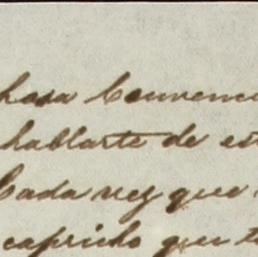 hasa Convenc
hablarte de es
Cada vez que
capricho que t